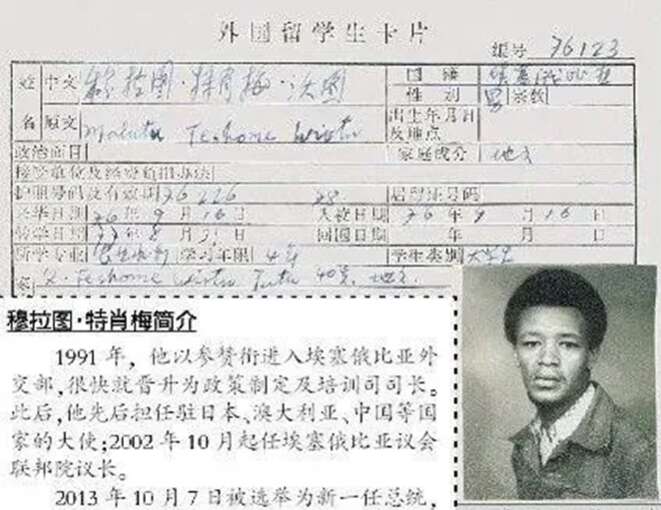 外国留学生卡片
编号 76123
姓名 中文 穆拉图·特肖梅·沃图 国籍 埃塞俄比亚
性别 男 宗教
原文 Mulatu Teshome Wirtu 出生年月日及地点
政治面目 家庭成分 地主
护照号码及有效期 76226 78 居留证号码
来华日期 76年9月16日 入校日期 76年9月16日
转学日期 77年8月31日 回国日期 年 月 日
所学专业 学习年限 4年 学生类别 大学生
Teshome Wirtu 40岁
穆拉图·特肖梅简介
1991年，他以参赞衔进入埃塞俄比亚外
交部，很快就晋升为政策制定及培训司司长。
此后，他先后担任驻日本、澳大利亚、中国等国
家的大使；2002年10月起任埃塞俄比亚议会
联邦院议长。
2013年10月7日被选举为新一任总统，